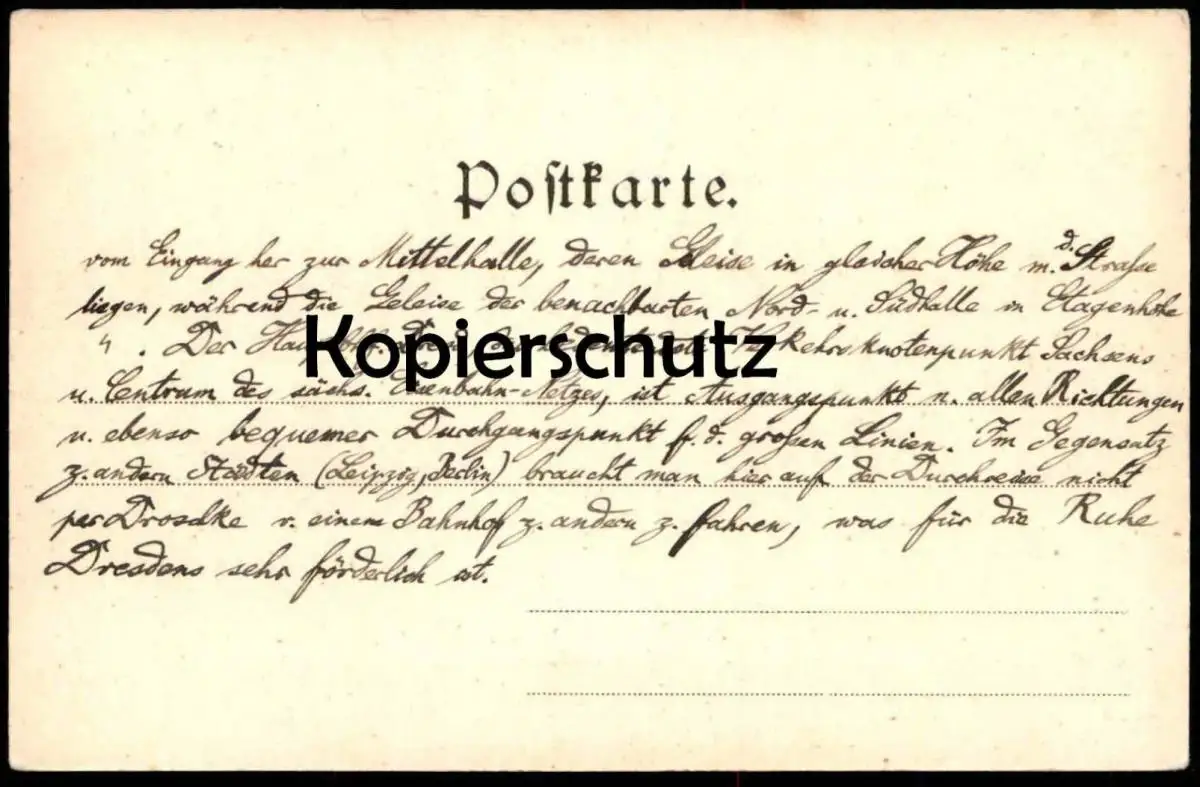 Postkarte.
vom Eingang her zur Mittelhalle, deren Geleise in gleicher Höhe m. d. Straße
liegen, während die Geleise der benachbarten Nord- u. Südhalle in Etagenhöhe
" . Der Verkehrsknotenpunkt Sachsens
Kopierschutz
u. Centrum des sächs. Eisenbahn-Netzes, ist Ausgangspunkt n. allen Richtungen
u. ebenso bequemer Durchgangspunkt f. d. großen Linien. Im Gegensatz
z. andern Städten (Leipzig, Berlin) braucht man hier auf der Durchreise nicht
per Droschke v. einem Bahnhof z. andern z. fahren, was für die Ruhe
Dresdens sehr förderlich ist.